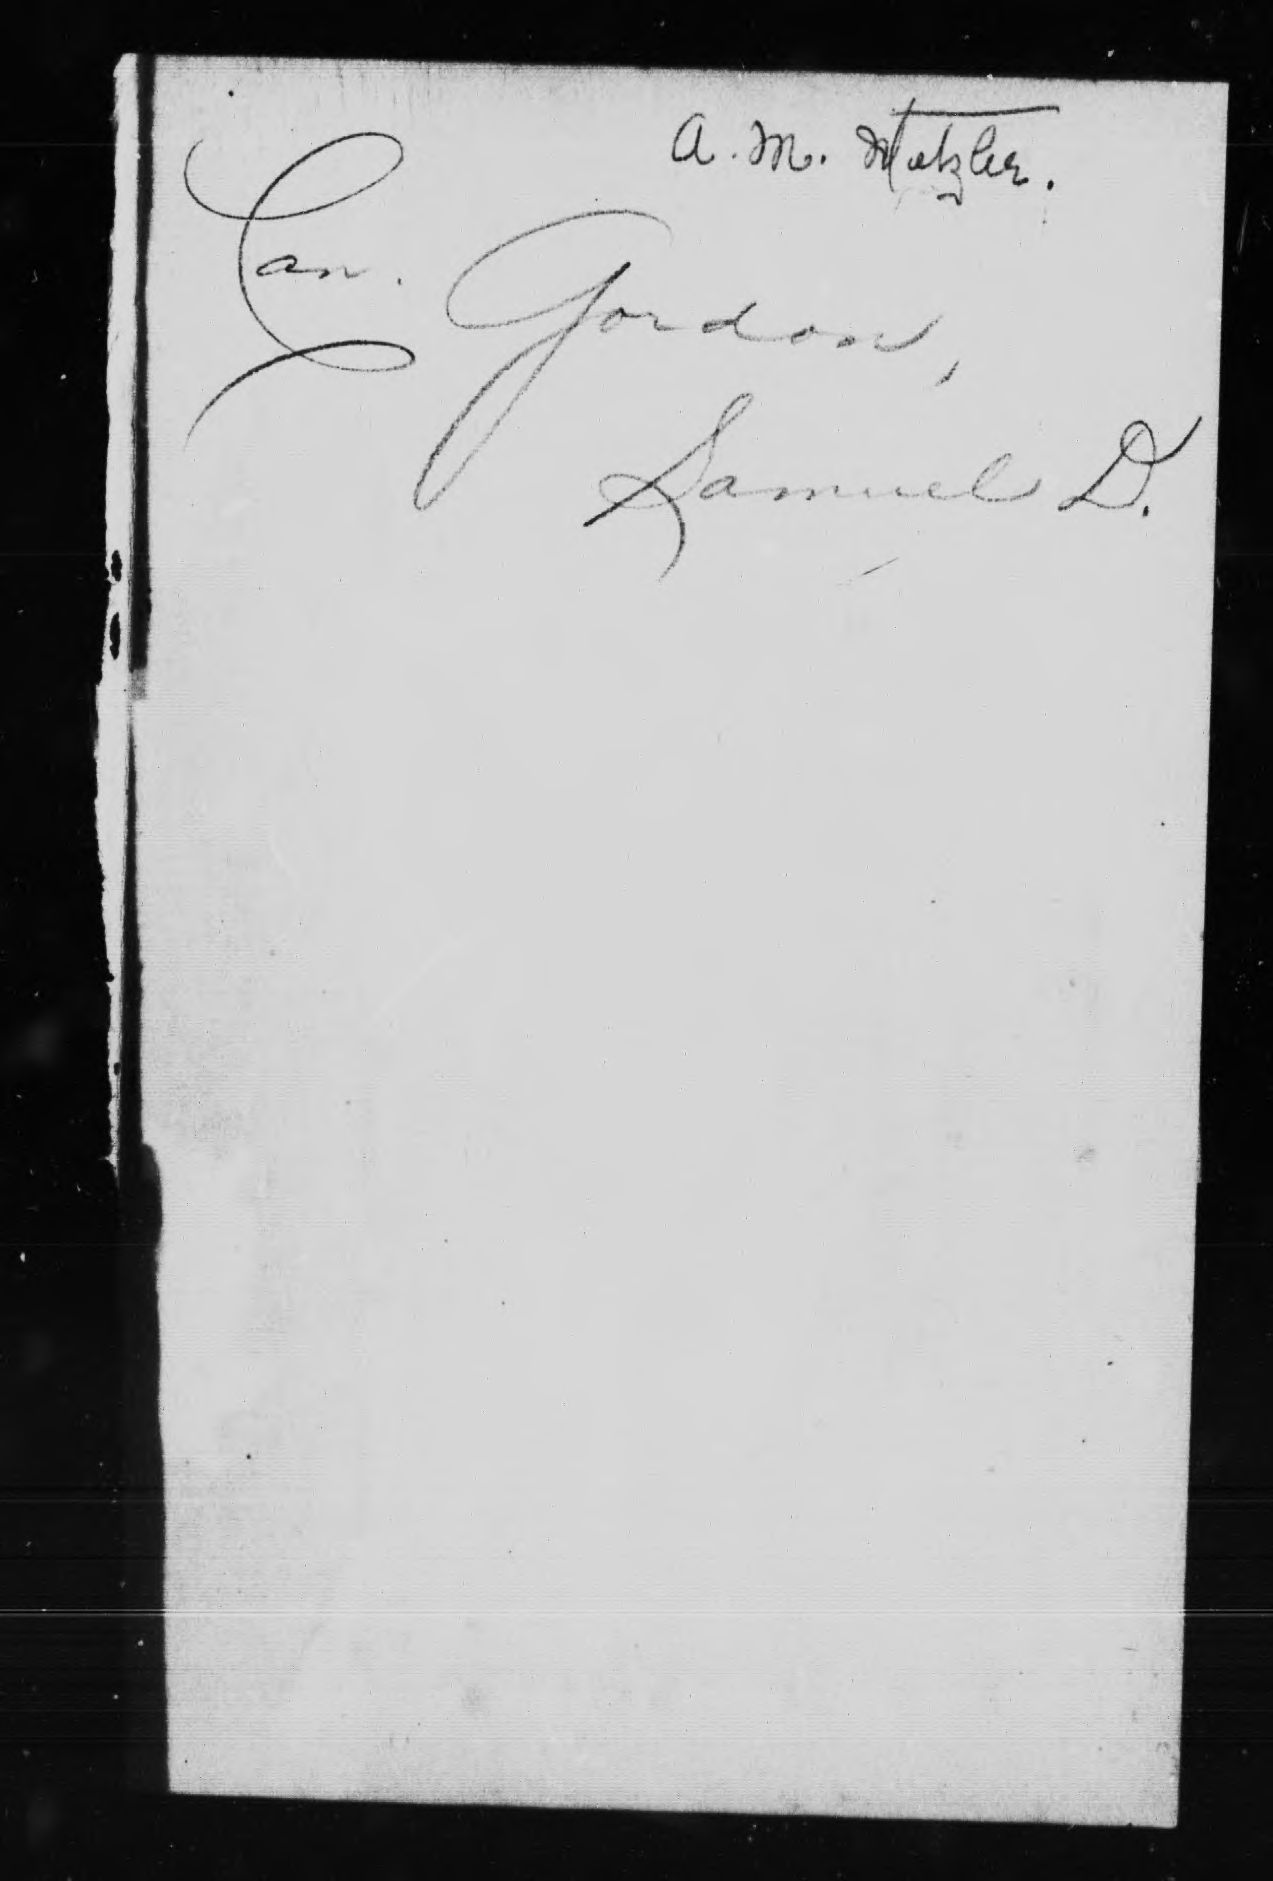 A. M. Metzler.
Can. Gordon,
Samuel D.